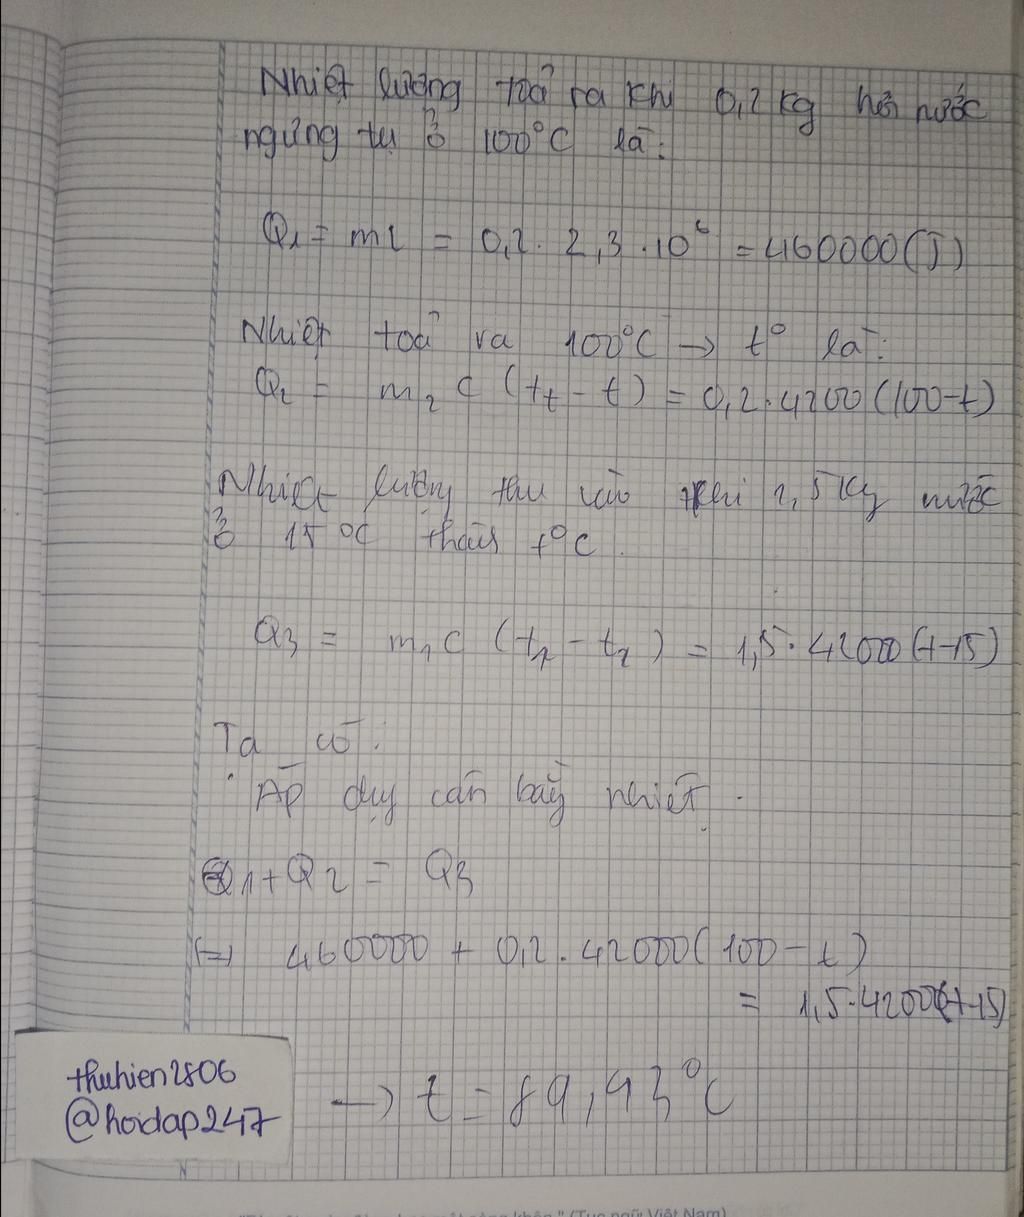 Nhiệt lượng toả ra khi 0,2 kg hơi nước
ngưng tụ ở 100°C là:
Q1 = mL = 0,2. 2,3 .10⁶ = 460000(J)
Nhiệt toả ra 100°C → t° là:
Q2 = m2 c (tt - t) = 0,2.4200(100-t)
Nhiệt lượng thu vào khi 1,5 kg nước
ở 15°C thành t°C.
Q3 = m1 c (t1 - t2) = 1,5. 42000(t-15)
Ta có:
Áp dụng cân bằng nhiệt.
Q1 + Q2 = Q3
(=) 460000 + 0,2. 42000(100-t)
= 1,5.4200(t-15)
→ t = 89,43°C
thuhien2806
@hoidap247
(Tục ngữ Việt Nam)